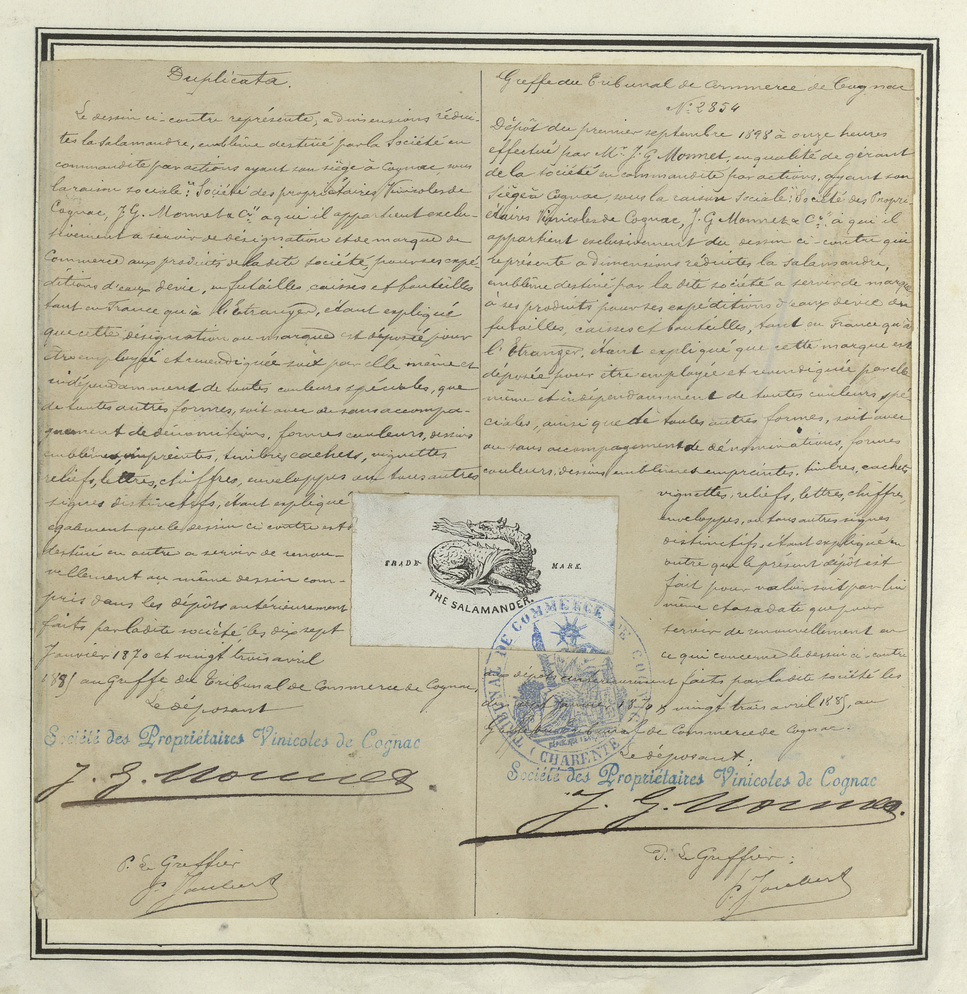 Duplicata.
Le dessin ci-contre représente, a dimensions rédui-
tes la salamandre, emblème destiné par la Société en
commandite par actions ayant son siège à Cognac, sous
la raison sociale: "Société des propriétaires Vinicoles de
Cognac, J. G. Monnet & Cie" a qui il appartient exclu-
sivement a servir de désignation et de marque de
Commerce aux produits de la dite société, pour ses expé-
ditions d'eaux de vie, en futailles, caisses et bouteilles
tant en France qu'à l'Etranger, étant expliqué
que cette désignation ou marque est déposée pour
être employée et revendiquée soit par elle même et
indépendamment de toutes couleurs spéciales, que
de toutes autres formes, soit avec ou sans accompa-
gnement de dénominations, formes couleurs, dessins
emblèmes, empreintes, timbres cachets, vignettes
reliefs, lettres, chiffres, enveloppes ou tous autres
signes distinctifs, étant expliqué
également que le dessin ci contre est
destiné en outre a servir de renou-
vellement au même dessin com-
pris dans les dépôts antérieurement
faits par la dite société les dix sept
Janvier 1870 et vingt trois avril
1885 au Greffe du Tribunal de Commerce de Cognac,
Le déposant
Société des Propriétaires Vinicoles de Cognac
J. G. Monnet
P. Le Greffier
P. Joubert
Greffe du Tribunal de Commerce de Cognac
No 2854
Dépôt du premier septembre 1898 à onze heures
effectué par Mr. J. G Monnet, en qualité de gérant
de la société en commandite par actions, ayant son
Siège à Cognac, sous la raison Sociale: "Société des Propri-
étaires Vinicoles de Cognac, J. G Monnet & Cie" à qui il
appartient exclusivement du dessin ci-contre qui
représente a dimensions réduites la salamandre,
emblème destiné par la dite société a servir de marque
à ses produits pour ses expéditions d'eaux de vie en
futailles, caisses et bouteilles, tant en France qu'à
l'Etranger, étant expliqué que cette marque est
déposée pour être employée et revendiquée par elle
même et indépendamment de toutes couleurs, spé-
ciales, ainsi que de toutes autres formes, soit avec
ou sans accompagnement de dénominations, formes
couleurs, dessins, emblèmes empreintes, timbres, cachets
vignettes, reliefs, lettres, chiffres,
enveloppes, ou tous autres signes
distinctifs, étant expliqué en
outre que le présent dépôt est
fait pour valoir soit par lui
même et a sa date que pour
servir de renouvellement en
ce qui concerne le dessin ci-contre
aux dépôts antérieurement faits par la dite société les
dix sept Janvier 1870 & vingt trois avril 1885, au
Greffe du Tribunal de Commerce de Cognac.
Le déposant:
Société des Propriétaires Vinicoles de Cognac
J. G. Monnet.
P. Le Greffier:
P. Joubert
TRADE MARK.
THE SALAMANDER.
TRIBUNAL DE COMMERCE DE COGNAC
(CHARENTE)